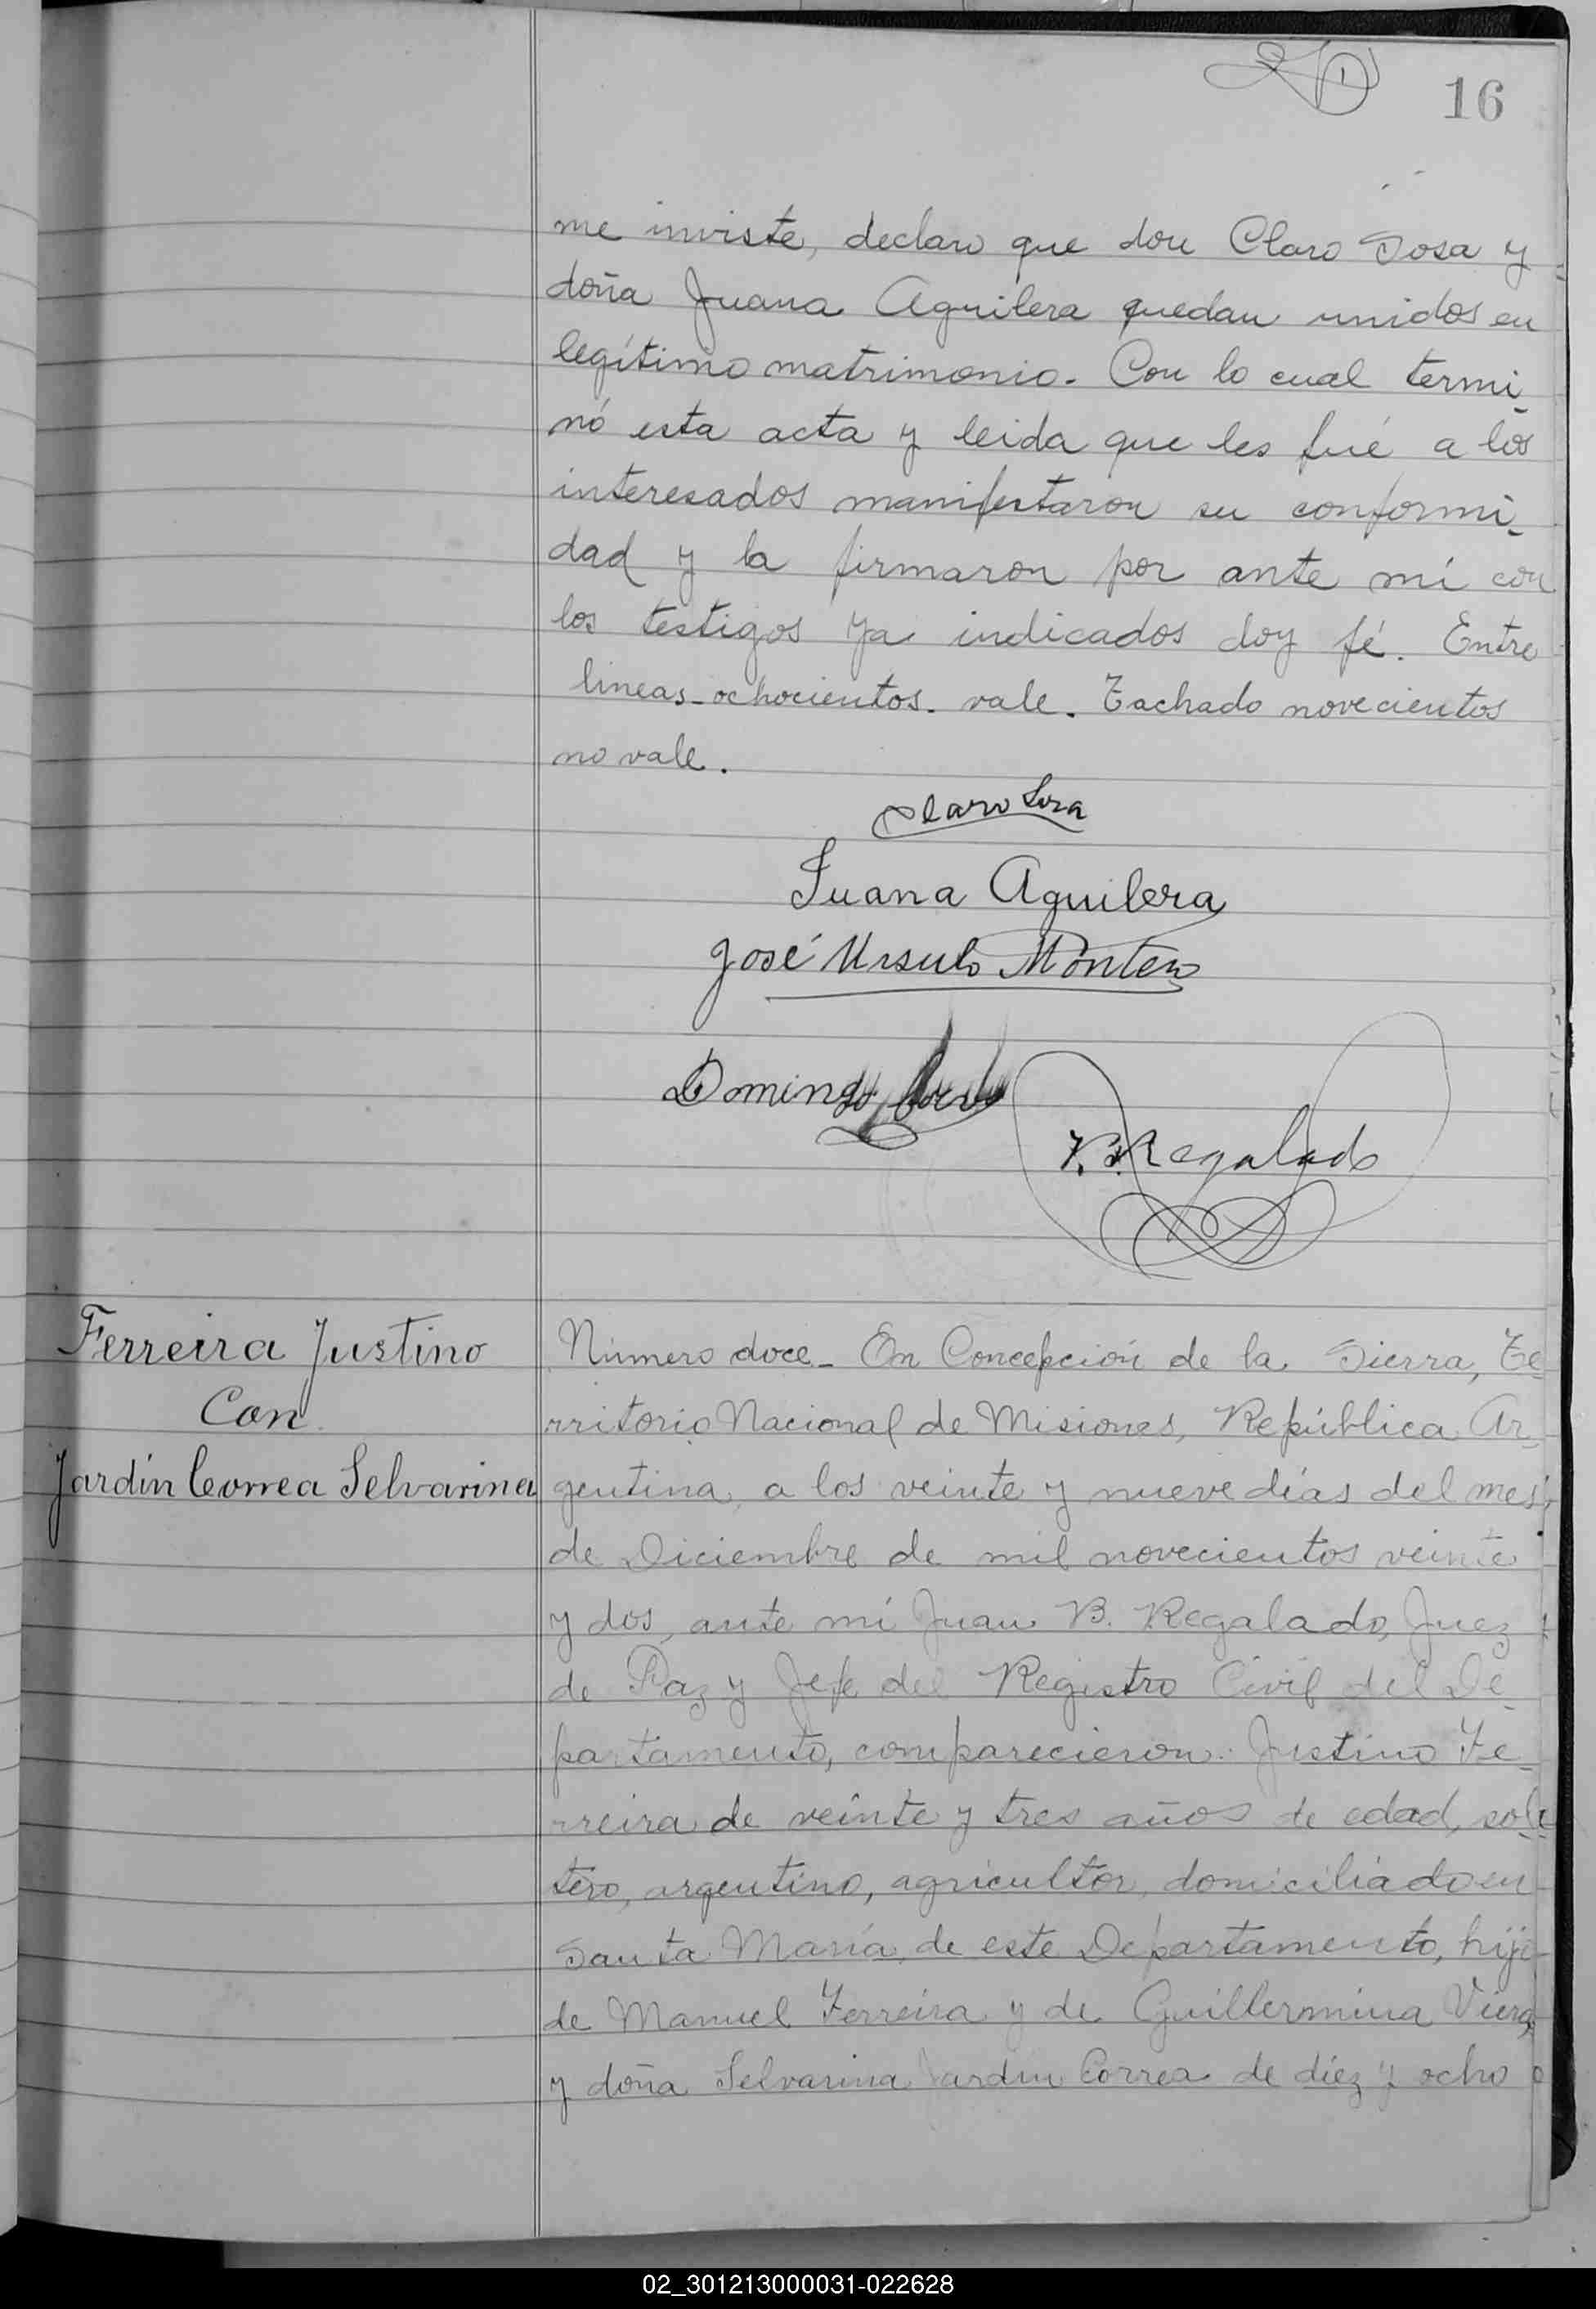 16
me inviste, declaro que don Claro Sosa y
doña Juana Aguilera quedan unidos en
legítimo matrimonio. Con lo cual termi-
nó esta acta y leida que les fué a los
interesados manifestaron su conformi-
dad y la firmaron por ante mí con
los testigos ya indicados doy fé. Entre
lineas-ochocientos. vale. Tachado novecientos
no vale.
Claro Sosa
Juana Aguilera
José Ursulo Montero
Domingo
Regalado
Ferreira Justino
Con
Jardín Correa Selvarina
Número doce- En Concepción de la Sierra, Te-
rritorio Nacional de Misiones, República Ar-
gentina, a los veinte y nueve días del mes
de Diciembre de mil novecientos veinte
y dos, ante mí Juan B. Regalado, Juez
de Paz y Jefe del Registro Civil del De-
partamento, comparecieron: Justino Fe-
rreira de veinte y tres años de edad, sol-
tero, argentino, agricultor, domiciliado en
Santa María, de este Departamento, hijo
de Manuel Ferreira y de Guillermina Viera,
y doña Selvarina Jardin Correa de diez y ocho
02_301213000031-022628